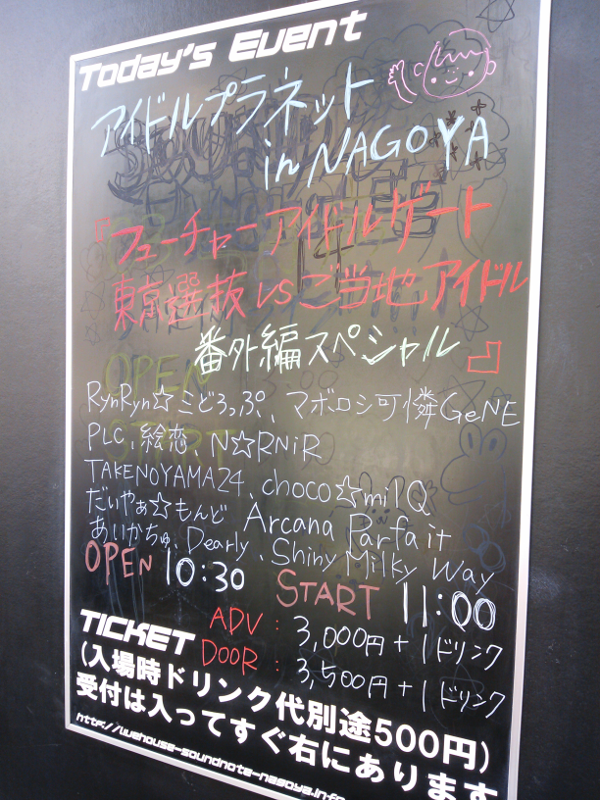 Today's Event
アイドルプラネット
in NAGOYA
『フューチャーアイドルゲート
東京選抜 VS ご当地アイドル
番外編スペシャル』
RynRyn☆ミどろっぷ、マボロシ可憐GeNE
PLC、絵恋、N☆RNiR
TAKENOYAMA24、choco☆milQ
だいやぁ☆もんど Arcana Parfait
あいかちゅ、Dearly、Shiny Milky Way
OPEN 10:30 START 11:00
TICKET ADV : 3,000円+1ドリンク
DOOR : 3,500円+1ドリンク
(入場時ドリンク代別途500円)
受付は入ってすぐ右にあります
http://livehouse-soundnote-nagoya.info